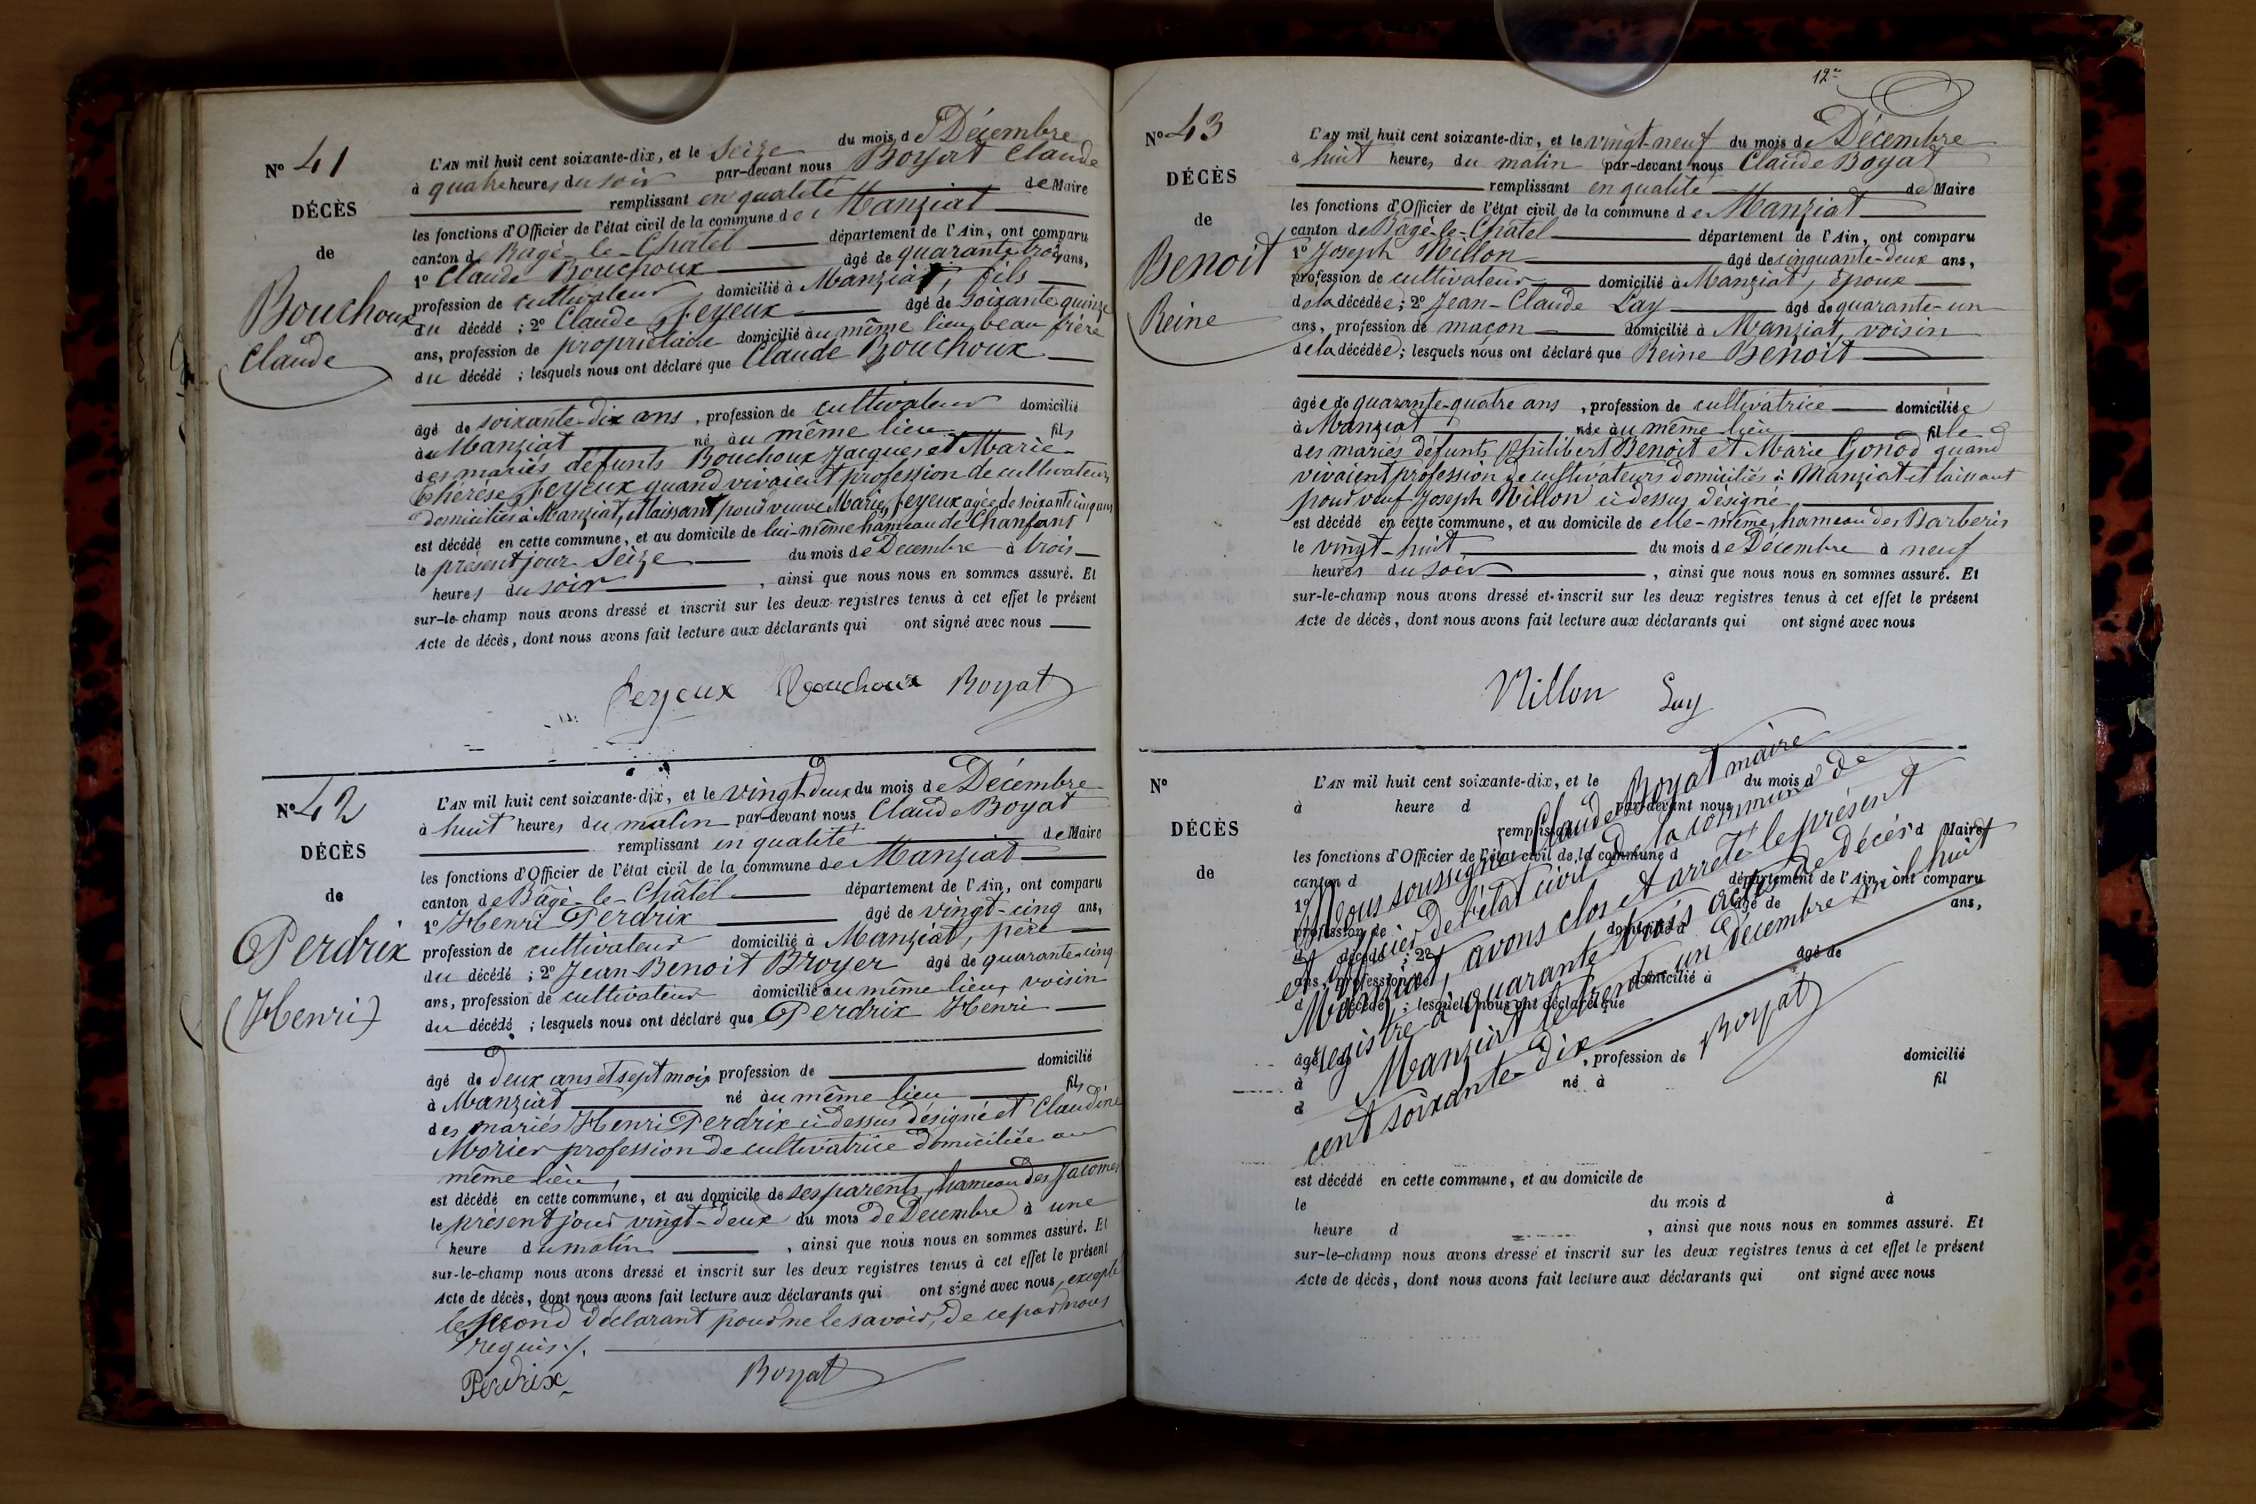 N° 41
DÉCÈS
de
Bouchoux
Claude
L'AN mil huit cent soixante-dix, et le Seize du mois de Décembre
à quatre heures du soir par-devant nous Boyat Claude
remplissant en qualité de Maire
les fonctions d'Officier de l'état civil de la commune de Manziat
canton de Bagé-le-Châtel département de l'Ain, ont comparu
1° Claude Bouchoux âgé de quarante-trois ans,
profession de cultivateur domicilié à Manziat, fils
du décédé ; 2° Claude Feyeux âgé de soixante quinze
ans, profession de propriétaire domicilié au même lieu, beau frère
du décédé ; lesquels nous ont déclaré que Claude Bouchoux
âgé de soixante-dix ans, profession de cultivateur domicilié
à Manziat né au même lieu fils
des mariés défunts Bouchoux Jacques et Marie
Thérèse Feyeux quand vivaient profession de cultivateurs
domiciliés à Manziat, et laissant pour veuve Marie Feyeux agée de soixante cinq ans
est décédé en cette commune, et au domicile de lui-même hameau de Chanfant
le présent jour Seize du mois de Décembre à trois
heures du soir, ainsi que nous nous en sommes assuré. Et
sur-le-champ nous avons dressé et inscrit sur les deux registres tenus à cet effet le présent
Acte de décès, dont nous avons fait lecture aux déclarants qui ont signé avec nous
Feyeux Bouchoux Boyat
N° 42
DÉCÈS
de
Perdrix
(Henri)
L'AN mil huit cent soixante-dix, et le vingt-deux du mois de Décembre
à huit heures du matin par-devant nous Claude Boyat
remplissant en qualité de Maire
les fonctions d'Officier de l'état civil de la commune de Manziat
canton de Bâgé-le-Châtel département de l'Ain, ont comparu
1° Henri Perdrix âgé de vingt-cinq ans,
profession de cultivateur domicilié à Manziat, père
du décédé ; 2° Jean Benoit Broyer âgé de quarante-cinq
ans, profession de cultivateur domicilié au même lieu, voisin
du décédé ; lesquels nous ont déclaré que Perdrix Henri
âgé de deux ans et sept mois profession de domicilié
à Manziat né au même lieu fils
des mariés Henri Perdrix ci dessus désigné et Claudine
Morier profession de cultivatrice domiciliée au
même lieu,
est décédé en cette commune, et au domicile de ses parents, hameau des Jacomes
le présent jour vingt-deux du mois de Décembre à une
heure du matin, ainsi que nous nous en sommes assuré. Et
sur-le-champ nous avons dressé et inscrit sur les deux registres tenus à cet effet le présent
Acte de décès, dont nous avons fait lecture aux déclarants qui ont signé avec nous, excepté
le second déclarant pour ne le savoir, de ce par nous
requis ./.
Perdrix Boyat
12e
N° 43
DÉCÈS
de
Benoit
Reine
L'AN mil huit cent soixante-dix, et le vingt-neuf du mois de Décembre
à huit heures du matin par-devant nous Claude Boyat
remplissant en qualité de Maire
les fonctions d'Officier de l'état civil de la commune de Manziat
canton de Bâgé-le-Châtel département de l'Ain, ont comparu
1° Joseph Nillon âgé de cinquante-deux ans,
profession de cultivateur domicilié à Manziat, époux
de la décédée ; 2° Jean-Claude Lay âgé de quarante-un
ans, profession de maçon domicilié à Manziat, voisin
de la décédée ; lesquels nous ont déclaré que Reine Benoit
âgée de quarante-quatre ans, profession de cultivatrice domiciliée
à Manziat née au même lieu fille
des mariés défunts Philibert Benoit et Marie Gonod quand
vivaient profession de cultivateurs domiciliés à Manziat et laissant
pour veuf Joseph Nillon ci dessus désigné
est décédé en cette commune, et au domicile de elle-même, hameau des Barberis
le vingt-huit du mois de Décembre à neuf
heures du soir, ainsi que nous nous en sommes assuré. Et
sur-le-champ nous avons dressé et inscrit sur les deux registres tenus à cet effet le présent
Acte de décès, dont nous avons fait lecture aux déclarants qui ont signé avec nous
Nillon Lay
N°
DÉCÈS
de
L'AN mil huit cent soixante-dix, et le du mois d
à heure d par-devant nous
remplissant d Maire
les fonctions d'Officier de l'état civil de la commune d
canton d département de l'Ain, ont comparu
1° âgé de ans,
profession de domicilié à
d décédé ; 2° âgé de
ans, profession de domicilié à
d décédé ; lesquels nous ont déclaré que
âgé de , profession de domicilié
à né à fil
d
Nous soussigné Claude Boyat maire
et officier de l'état civil de la commune de
Manziat, avons clos et arrêté le présent
registre à quarante trois actes de décès
Manziat le trente un décembre mil huit
cent soixante-dix
Boyat
est décédé en cette commune, et au domicile de
le du mois d à
heure d , ainsi que nous nous en sommes assuré. Et
sur-le-champ nous avons dressé et inscrit sur les deux registres tenus à cet effet le présent
Acte de décès, dont nous avons fait lecture aux déclarants qui ont signé avec nous